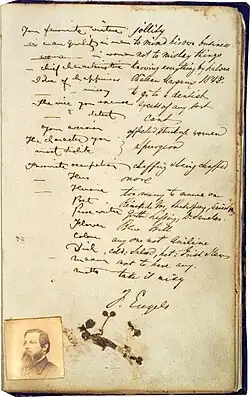 Your favourite virtue jollity
— quality in man to mind his own business
— woman not to mislay things
— chief characteristic knowing everything by halves
Idea of happiness Château Margaux 1848
— misery to go to a dentist
The vice you excuse excess of any sort
— detest Cant
Your aversion affected stuck up women
The character you
most dislike Spurgeon
Favourite occupation chaffing & being chaffed
— Hero none
— Heroine too many to name one
— Poet
Prose writer Göthe, Lessing, Dr
Flower Blue Bell
Colour any one not Aniline
Dish cold: Salad, hot: Irish Stew
Maxim not to have any
Motto take it easy
F. Engels